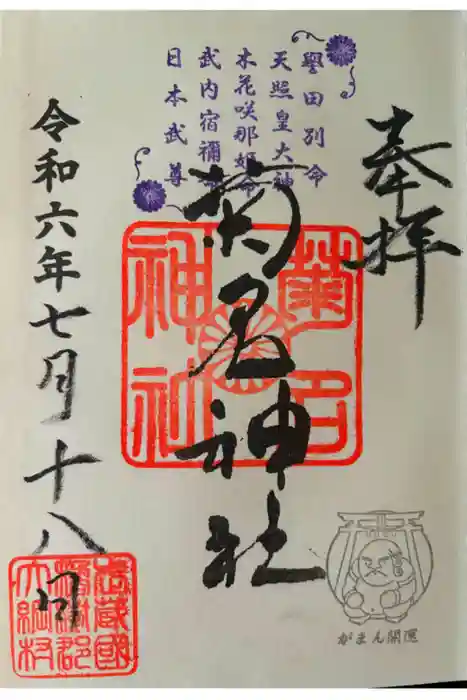 奉拝
譽田別命
天照皇大神
木花咲那姫命
武内宿禰
日本武尊
菊名神社
菊名神社
令和六年七月十八日
武蔵國
橘樹郡
大綱村
がまん開運